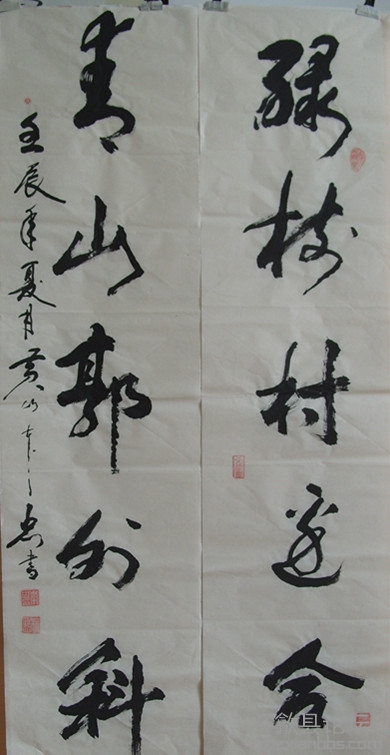 绿树村边合
青山郭外斜
壬辰年夏月黄山
书